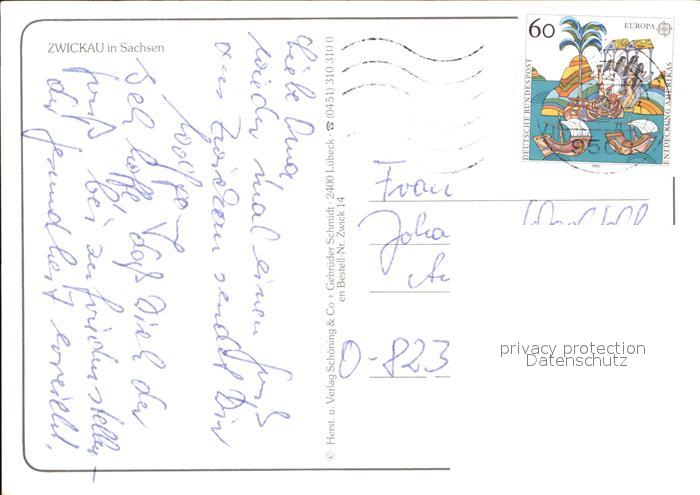 ZWICKAU in Sachsen
Liebe Oma
wieder mal einen Gruß
aus Zwickau sendet Dir
Wolfgang
Ich hoffe, daß Dich der
Gruß bei zufriedenstellen-
der Gesundheit erreicht.
© Herst. u. Verlag Schöning & Co + Gebrüder Schmidt · 2400 Lübeck · ☎ (0451) 310 310 0
en Bestell-Nr. Zwick 14
60
EUROPA
DEUTSCHE BUNDESPOST
ENTDECKUNG AMERIKAS
1992
956
Frau
Joha
O-823
privacy protection
Datenschutz